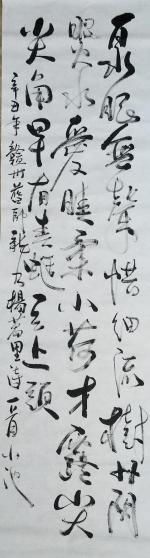 泉眼無聲惜細流樹陰
照水愛晴柔小荷才露尖
尖角早有蜻蜓立上頭
辛丑年贛州藝師龍楊萬里詩一首小池